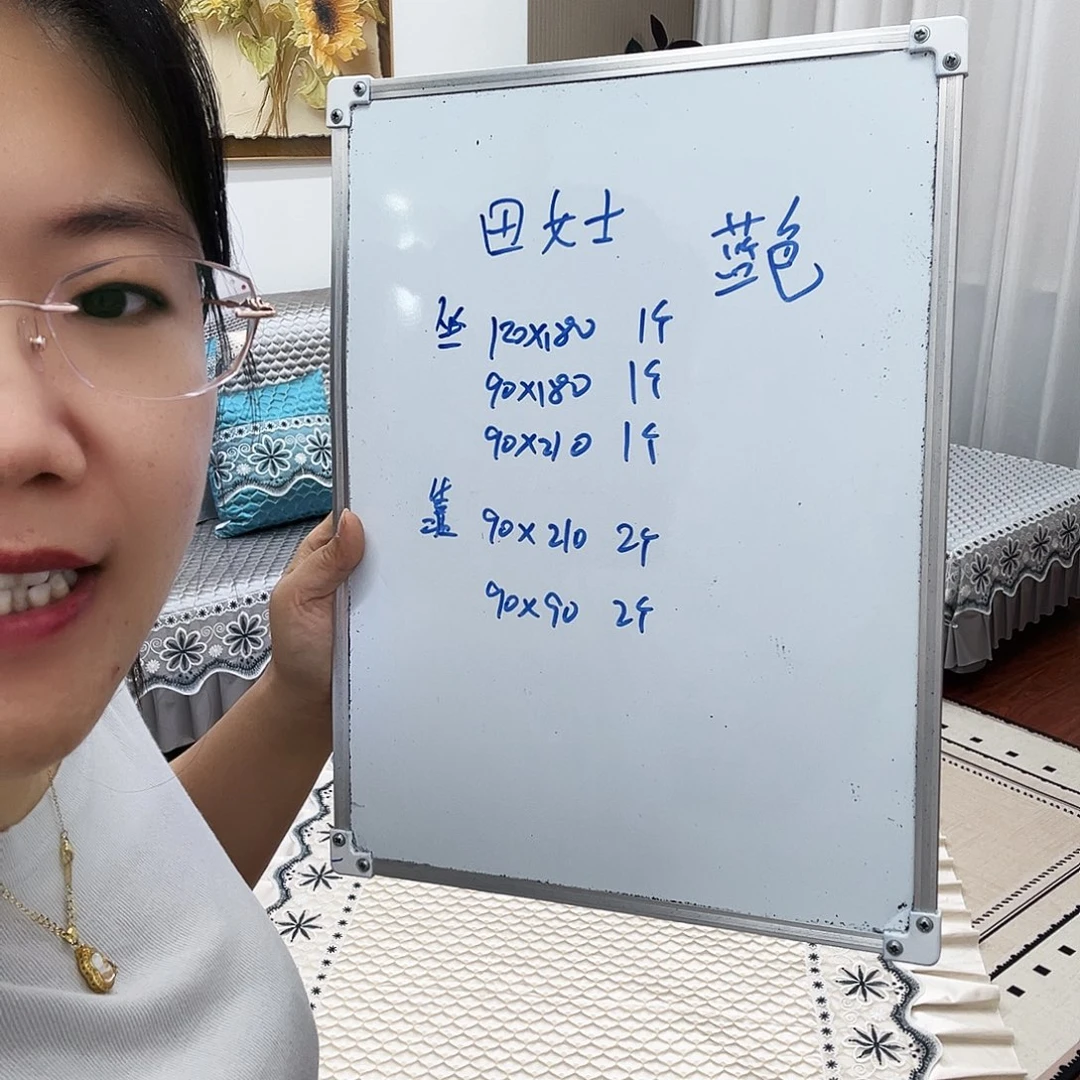 田女士 蓝色
坐 120x180 1个
90x180 1个
90x210 1个
靠 90x210 2个
90x90 2个